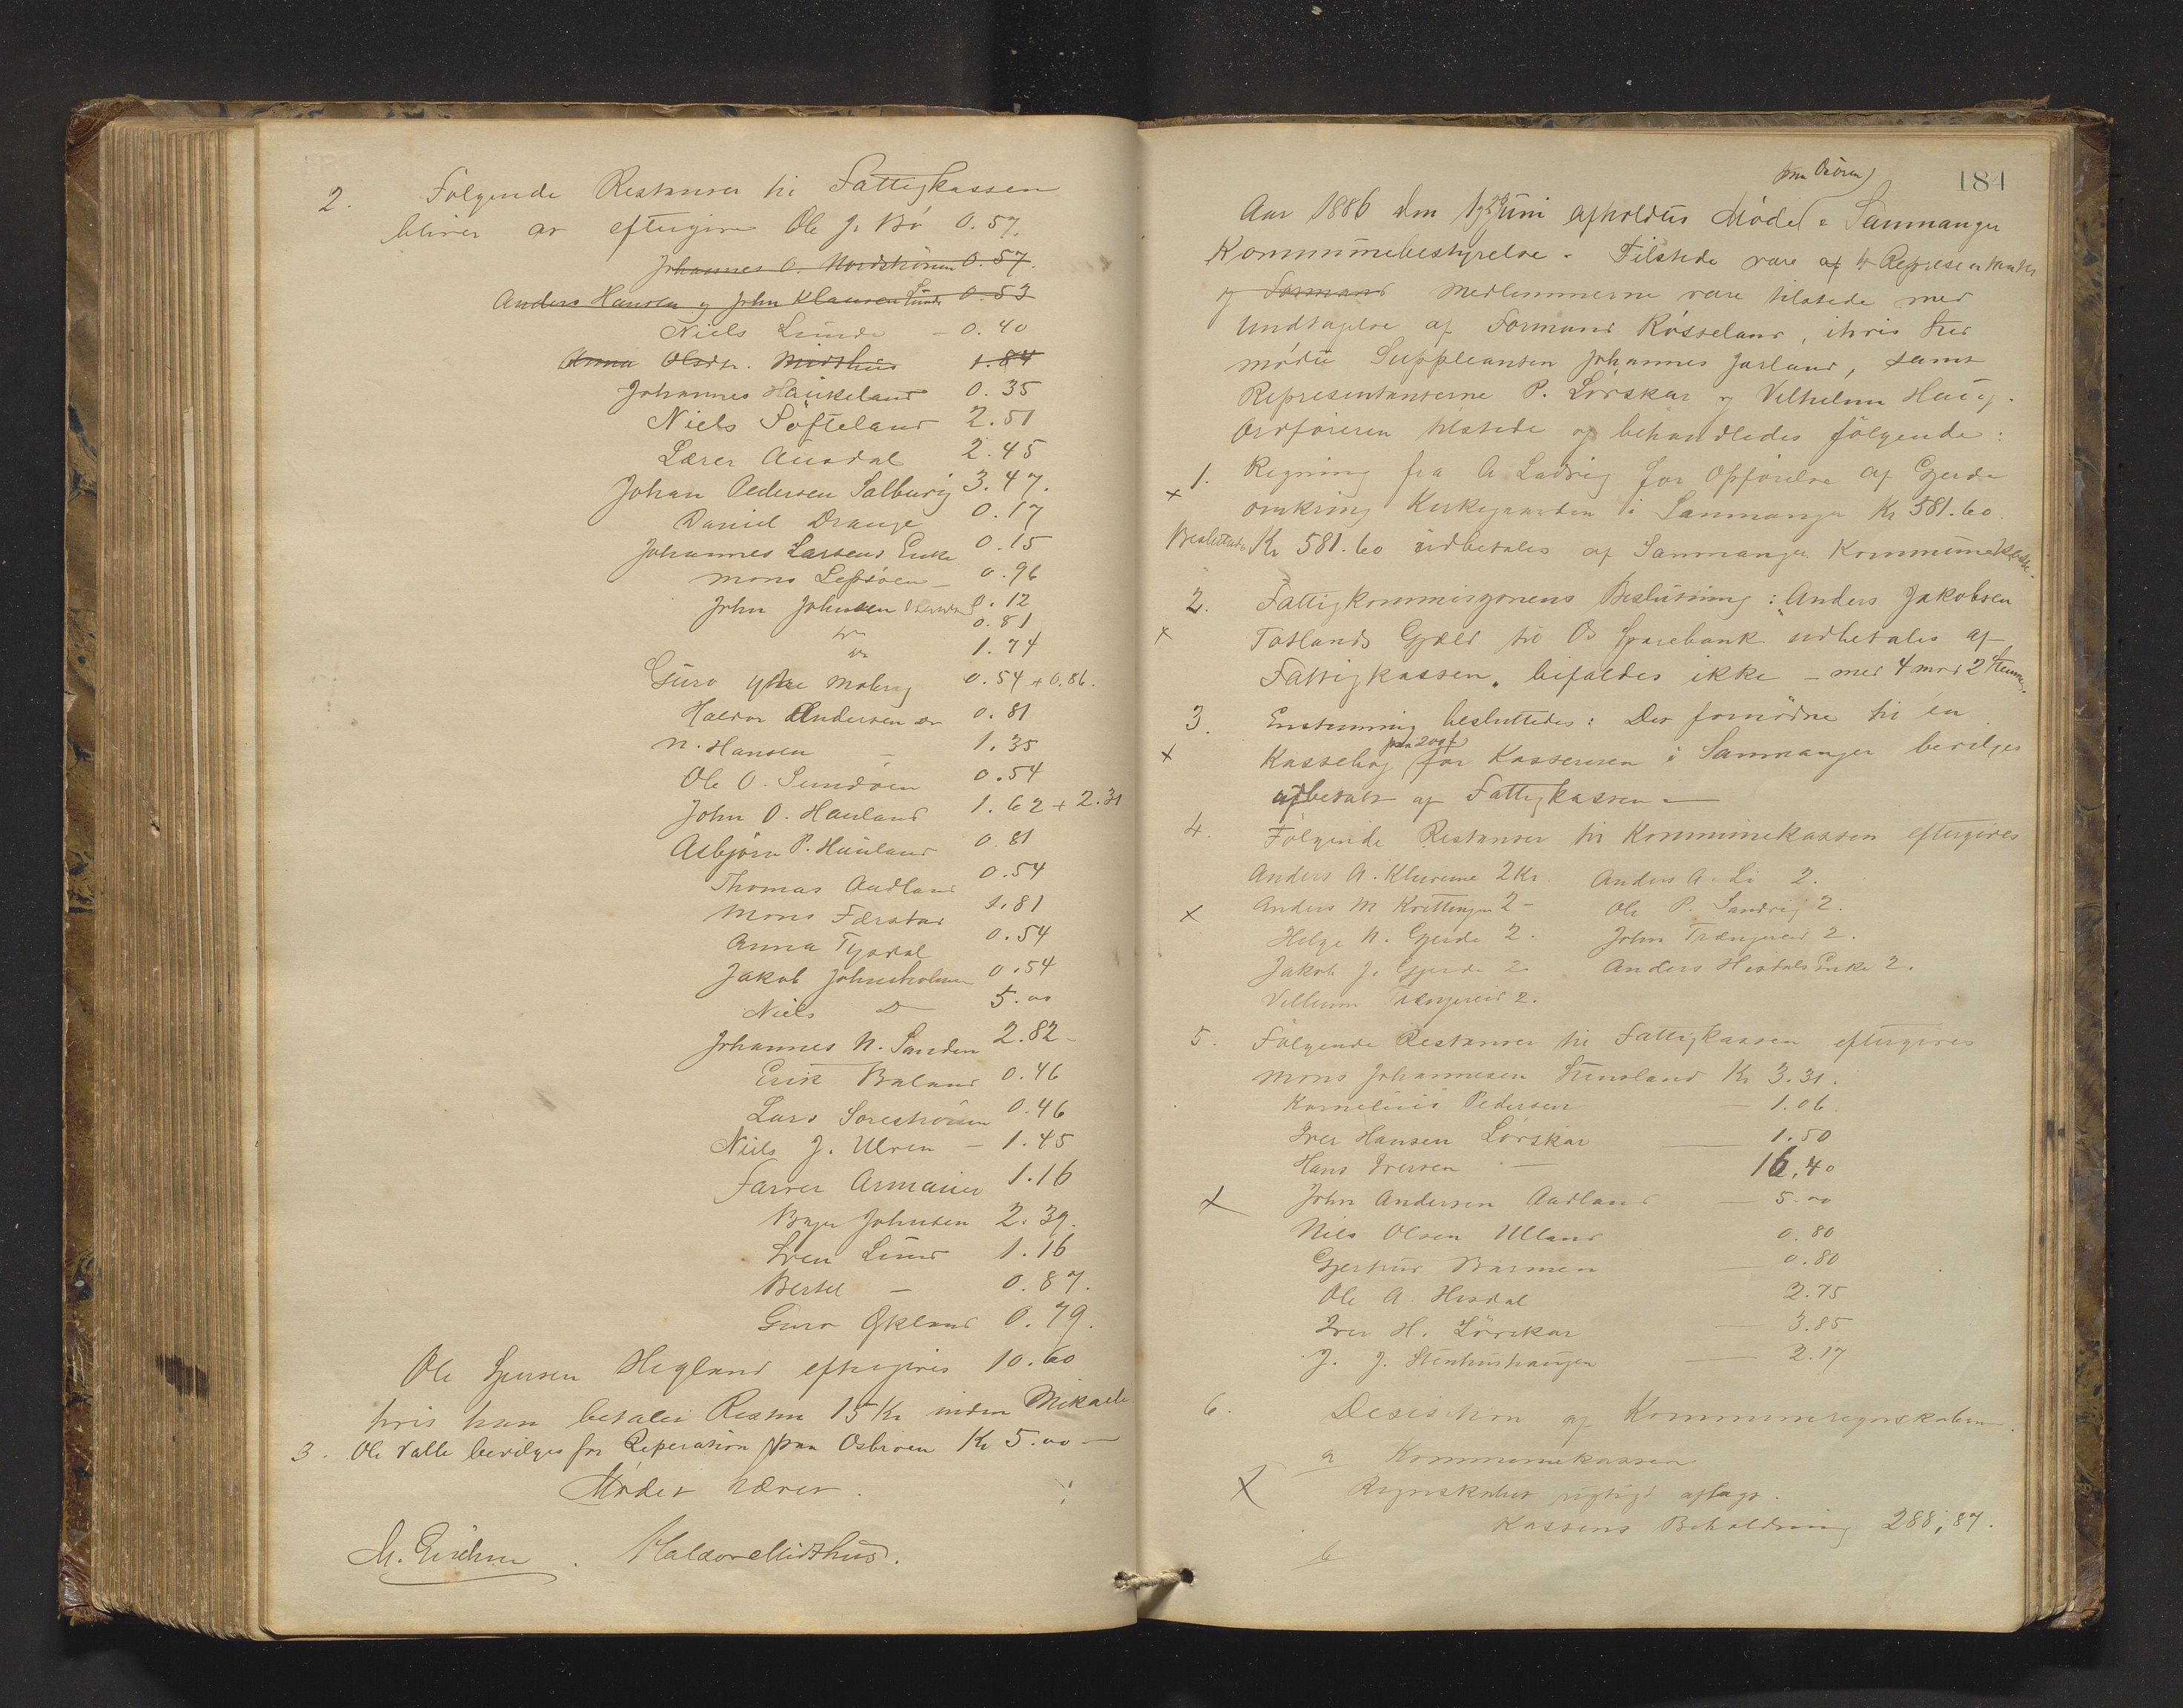 2. Følgende Restanser til Fattigkassen
bliver at eftergive Ole J. Bø 0.57.
Johannes O. Nordstrønen 0.57.
Anders Hansen og John Klausen Lunde 0.53
Niels Lunde – 0.40
Anna Olsdtr. Midthus 1.84
Johannes Haukeland 0.35
Niels Søfteland 2.51
Lærer Ausdal 2.45
Johan Pedersen Salbuvig 3.47.
Daniel Drange 0.17
Johannes Larsens Enke 0.15
Mons Lepsøen – 0.96
John Johnsen 0.12
0.81
1.74
Guro ytre Moberg 0.54 + 0.86.
Haldor Andersen 0.81
N. Hansen – 1.35
Ole O. Sundøen 0.54
John O. Hauland 1.62 + 2.31
Asbjørn P. Hauland 0.81
Thomas Aadland 0.54
Mons Færstad 1.81
Anna Tysdal 0.54
Jakob Johnsholmen 0.54
Niels D 5.00
Johannes N. Sanden 2.82 –
Erik Baland 0.46
Lars Sørestrønen 0.46
Niels J. Ulven – 1.45
Farver Armauer 1.16
Johnsen 2.39.
Sven Lund 1.16
Bertel – 0.87.
Guro Økland 0.79.
Ole Jensen Hegland eftergives 10.60
hvis han betaler Resten 15 Kr inden Mikaeli
3. Ole Valle bevilges for Reperation paa Osbroen Kr 5.00 –
Mødet hævet.
Haldor Midthus.
184
paa Osøren
Aar 1886 den 12 Juni afholdtes Møde i Samnanger
Kommunebestyrelse. Tilstede vare af 4 Repræsentanter
og Formand Medlemmerne vare tilstede med
Undtagelse af Formand Røsseland, i hvis Sted
mødte Suppleanten Johannes Jarland, samt
Representanterne P. Lørskar og Vilhelm Haug.
Ordføreren tilstede og behandledes følgende:
1. Regning fra A Ladvig for Opførelse af Gjerde
× omkring Kirkegaarden i Samnanger Kr 581.60.
Besluttedes Kr 581.60 udbetales af Samnanger Kommunekasse.
2. Fattigkommisjonens Beslutning: "Anders Jakobsen
× Tøtlands Gjæld til Os Sparebank udbetales af
Fattigkassen" bifaldes ikke – med 4 mod 2 Stemmer.
3. Enstemmig besluttedes: Det fornødne til en
paa 200
× Kassebog for Kassereren i Samnanger bevilges
udbetalt af Fattigkassen –
4. Følgende Restanser til Kommunekassen eftergives
Anders A. 2 Kr. Anders A. Li 2.
× Anders M Kvittingen 2 – Ole P. Sandvig 2.
Helge N. Gjerde 2. John Trengereid 2.
Jakob J. Gjerde 2 Anders Hisdals Enke 2.
Villum Trengereid 2.
5. Følgende Restanser til Fattigkassen eftergives
Mons Johannesen Stensland Kr 3.31.
Kornelius Pedersen – 1.06.
Iver Hansen Lørskar – 1.50
Hans Iversen – 16.40
× John Andersen Aadland – 5.00
Nils Olsen Ulland 0.80
Gjertrud Barmen – 0.80
Ole A. Hisdal 2.75
Iver H. Lørskar – 3.85
J. J. Stenhushaugen – 2.17
6. Desisjon af Kommuneregnskaberne.
a Kommunekassen
× Regnskabet rigtigt aflagt.
Kassens Beholdning 288,87.
b